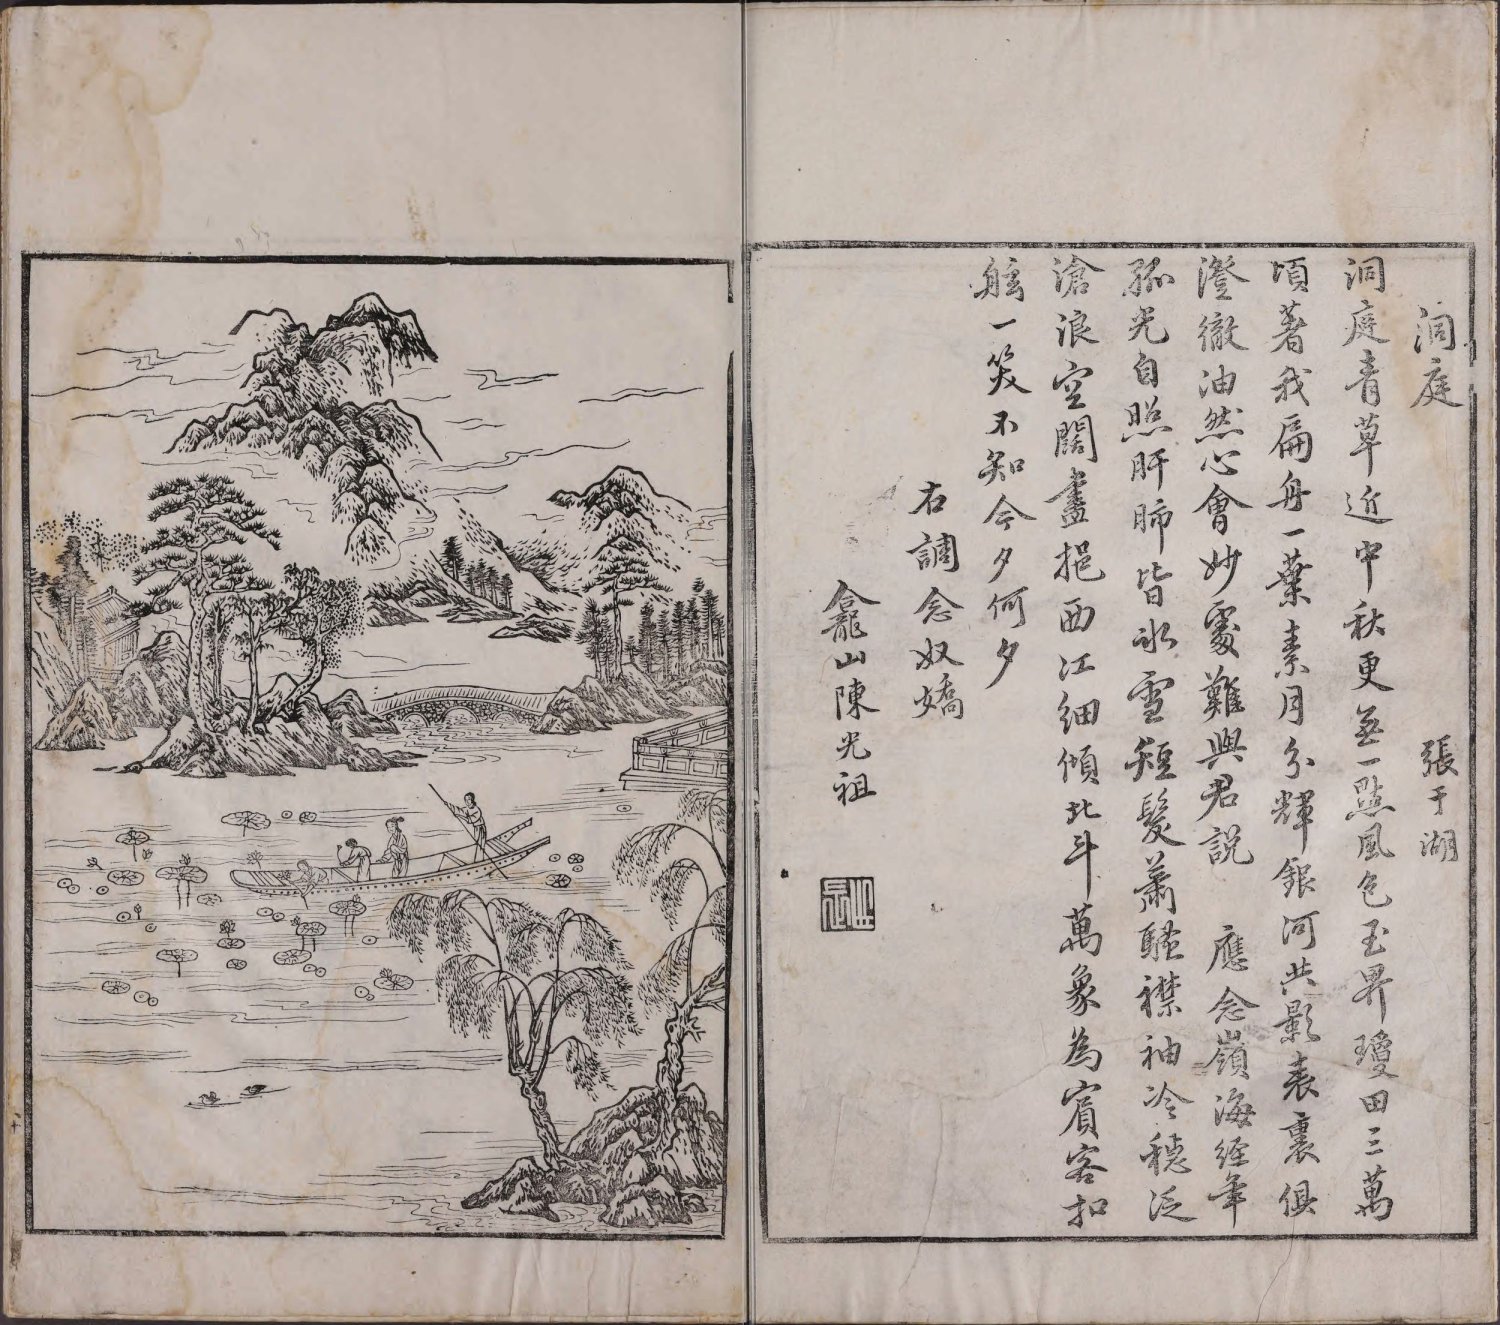 洞庭 張于湖
洞庭青草近中秋更無一點風色玉界瓊田三萬
頃著我扁舟一葉素月分輝銀河共影表裏俱
澄徹油然心會妙處難與君説 應念嶺海經年
孤光自照肝肺皆冰雪短髮蕭騷襟袖冷穩泛
滄浪空闊盡挹西江細傾北斗萬象為賓客扣
舷一笑不知今夕何夕
右調念奴嬌
龕山陳光祖